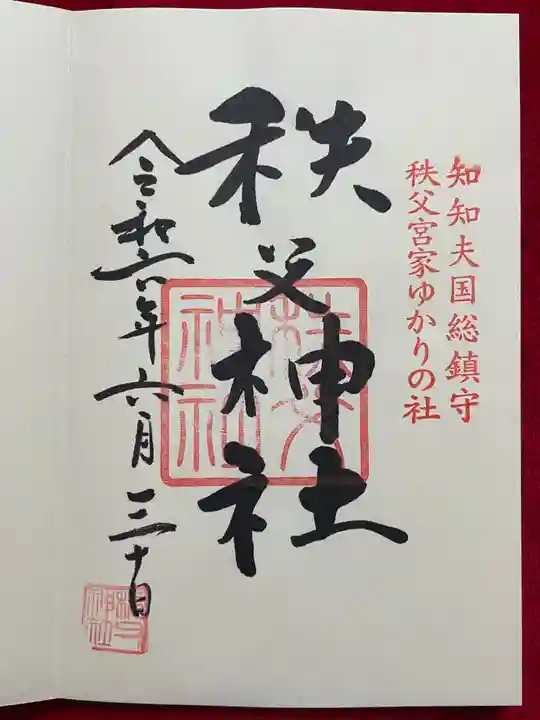 知知夫国総鎮守
秩父宮家ゆかりの社
秩父神社
令和六年六月三十日
秩父
神社